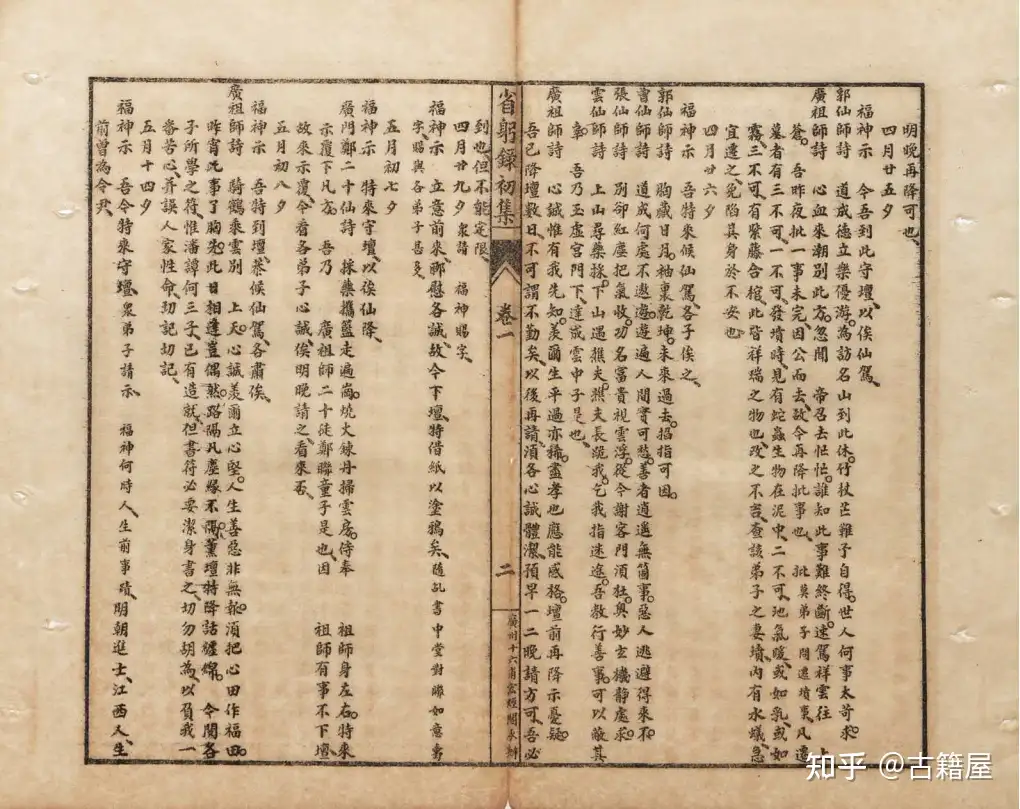 明晚再降可也、
四月廿五夕
福神示　今吾到此守壇、以俟仙駕、
郭仙師詩　道成德立樂優游。為訪名山到此休。竹杖芒鞋子自得。世人何事太苛求。
廣祖師詩　心血來潮別此方。忽聞　帝召去忙忙。誰知此事難終斷。速駕祥雲往上
蒼。吾昨夜批一事未完、因公而去、故今再降批事也、　批莫弟子問遷墳事、凡遷
墓者有三不可、一不可、發墳時、見有蛇蟲生物在泥中、二不可、地氣暖、或如乳、或如
霧、三不可、有緊藤合棺、此皆祥瑞之物也、改之不吉、查該弟子之妻墳、內有水蟻、急
宜遷之、免陷其身於不安也、
四月廿六夕
福神示　吾特來候仙駕、各子俟之、
郭仙師詩　胸藏日月袖裏乾坤。未來過去。掐指可因。
曹仙師詩　道成何處不遨遊。遊遍人間實可愁。善者逍遙無箇事。惡人逃避得來不。
張仙師詩　別卻紅塵把氣收。功名富貴視雲浮。從今謝客門須杜。奧妙玄機靜處求。
雲仙師詩　上山尋藥採。下山遇樵夫。樵夫長跪我。乞我指迷途。吾教行善事。可以蔽其
辜。　吾乃玉虛宮門下、達成雲中子是也、
廣祖師詩　心誠惟有我先知。羨爾生平過亦稀。盡孝也應能感格。壇前再降示憂疑。
吾已降壇數日、不可謂不勤矣、以後再請、須各心誠體潔、預早一二晚請方可、吾必
省躬錄初集　卷一　二　廣州十六甫宏經閣承辦
到也、但不能定限、
四月廿九夕　眾請　福神賜字、
福神示　立意前來、鄉慰各誠、故今下壇、特借紙以塗鴉矣、隨乩書中堂對聯如意壽
字、賜與各弟子甚多、
五月初七夕
福神示　特來守壇、以俟仙降、
廣門鄭二十仙詩　採藥攜籃走遍崗。燒火煉丹掃雲房。侍奉　祖師身左右。特來
示覆下凡方。　吾乃　廣祖師二十徒鄭聯童子是也、因　祖師有事不下壇
故來示覆、今看各弟子心誠、俟明晚請之、看來否、
五月初八夕
福神示　吾特到壇、恭候仙駕、各肅俟、
廣祖師詩　騎鶴乘雲別　上天。心誠羨爾立心堅。人生善惡非無報。須把心田作福田。
昨宵此事了胸先。此日相逢豈偶然。路隔凡塵緣不隔。薰壇特降話纏綿。　今聞各
子所學之符、惟潘譚何三子、已有造就、但書符必要潔身書之、切勿胡為、以負我一
番苦心、并誤人家性命、切記切記、
五月十四夕
福神示　吾今特來守壇、眾弟子請示、　福神何時人、生前事蹟、明朝進士、江西人、生
前曾為令尹、
知乎 @古籍屋